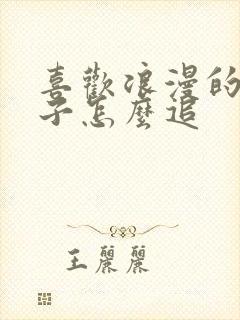 喜歡浪漫的
子怎麼追
王麗麗